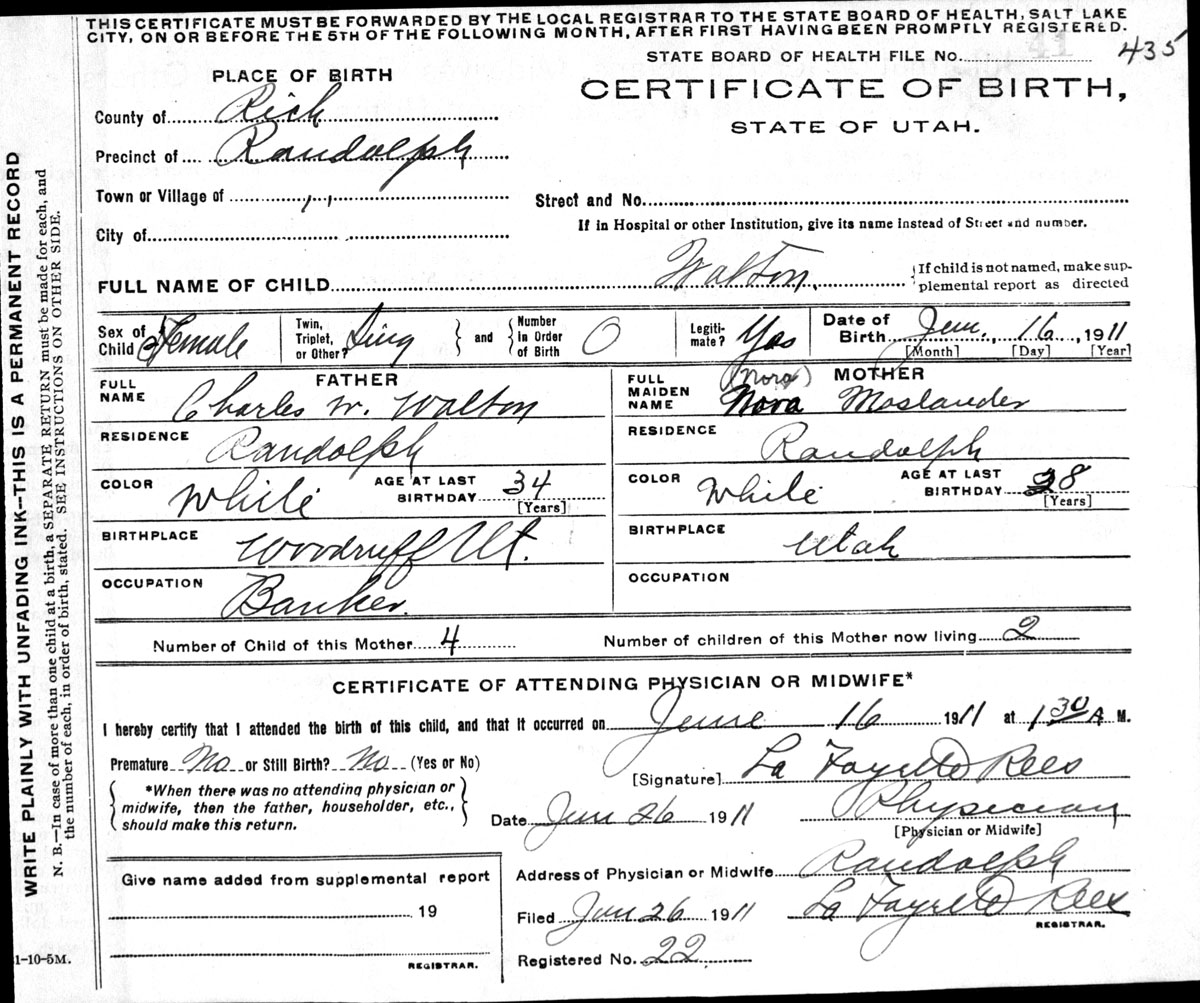 THIS CERTIFICATE MUST BE FORWARDED BY THE LOCAL REGISTRAR TO THE STATE BOARD OF HEALTH, SALT LAKE
CITY, ON OR BEFORE THE 5TH OF THE FOLLOWING MONTH, AFTER FIRST HAVING BEEN PROMPTLY REGISTERED.
STATE BOARD OF HEALTH FILE No. 41 435
PLACE OF BIRTH
CERTIFICATE OF BIRTH,
STATE OF UTAH.
County of Rich
Precinct of Randolph
Town or Village of ,,
Street and No.
If in Hospital or other Institution, give its name instead of Street and number.
City of
FULL NAME OF CHILD Walton
If child is not named, make sup-
plemental report as directed
Sex of
Child Female
Twin,
Triplet,
or Other? Sing
and
Number
in Order
of Birth 0
Legiti-
mate? Yas
Date of
Birth Jun. 16, 1911
[Month] [Day] [Year]
FATHER
FULL
NAME Charles W. Walton
MOTHER
FULL
MAIDEN
NAME (Nora) Nora Moslander
RESIDENCE Randolph
RESIDENCE Randolph
COLOR White
AGE AT LAST
BIRTHDAY 34
[Years]
COLOR White
AGE AT LAST
BIRTHDAY 28
[Years]
BIRTHPLACE Woodruff Ut.
BIRTHPLACE Utah
OCCUPATION Banker
OCCUPATION
Number of Child of this Mother 4
Number of children of this Mother now living 2
CERTIFICATE OF ATTENDING PHYSICIAN OR MIDWIFE*
I hereby certify that I attended the birth of this child, and that it occurred on June 16 1911 at 1 30 A M.
Premature No or Still Birth? No (Yes or No)
*When there was no attending physician or
midwife, then the father, householder, etc.,
should make this return.
[Signature] La Fayette Rees
Date Jun 26 1911
Physician
[Physician or Midwife]
Give name added from supplemental report
19
REGISTRAR.
Address of Physician or Midwife Randolph
Filed Jun 26 1911 La Fayette Rees
REGISTRAR.
Registered No. 22
1-10-5M.
WRITE PLAINLY WITH UNFADING INK—THIS IS A PERMANENT RECORD
N. B.—In case of more than one child at a birth, a SEPARATE RETURN must be made for each, and
the number of each, in order of birth, stated. SEE INSTRUCTIONS ON OTHER SIDE.